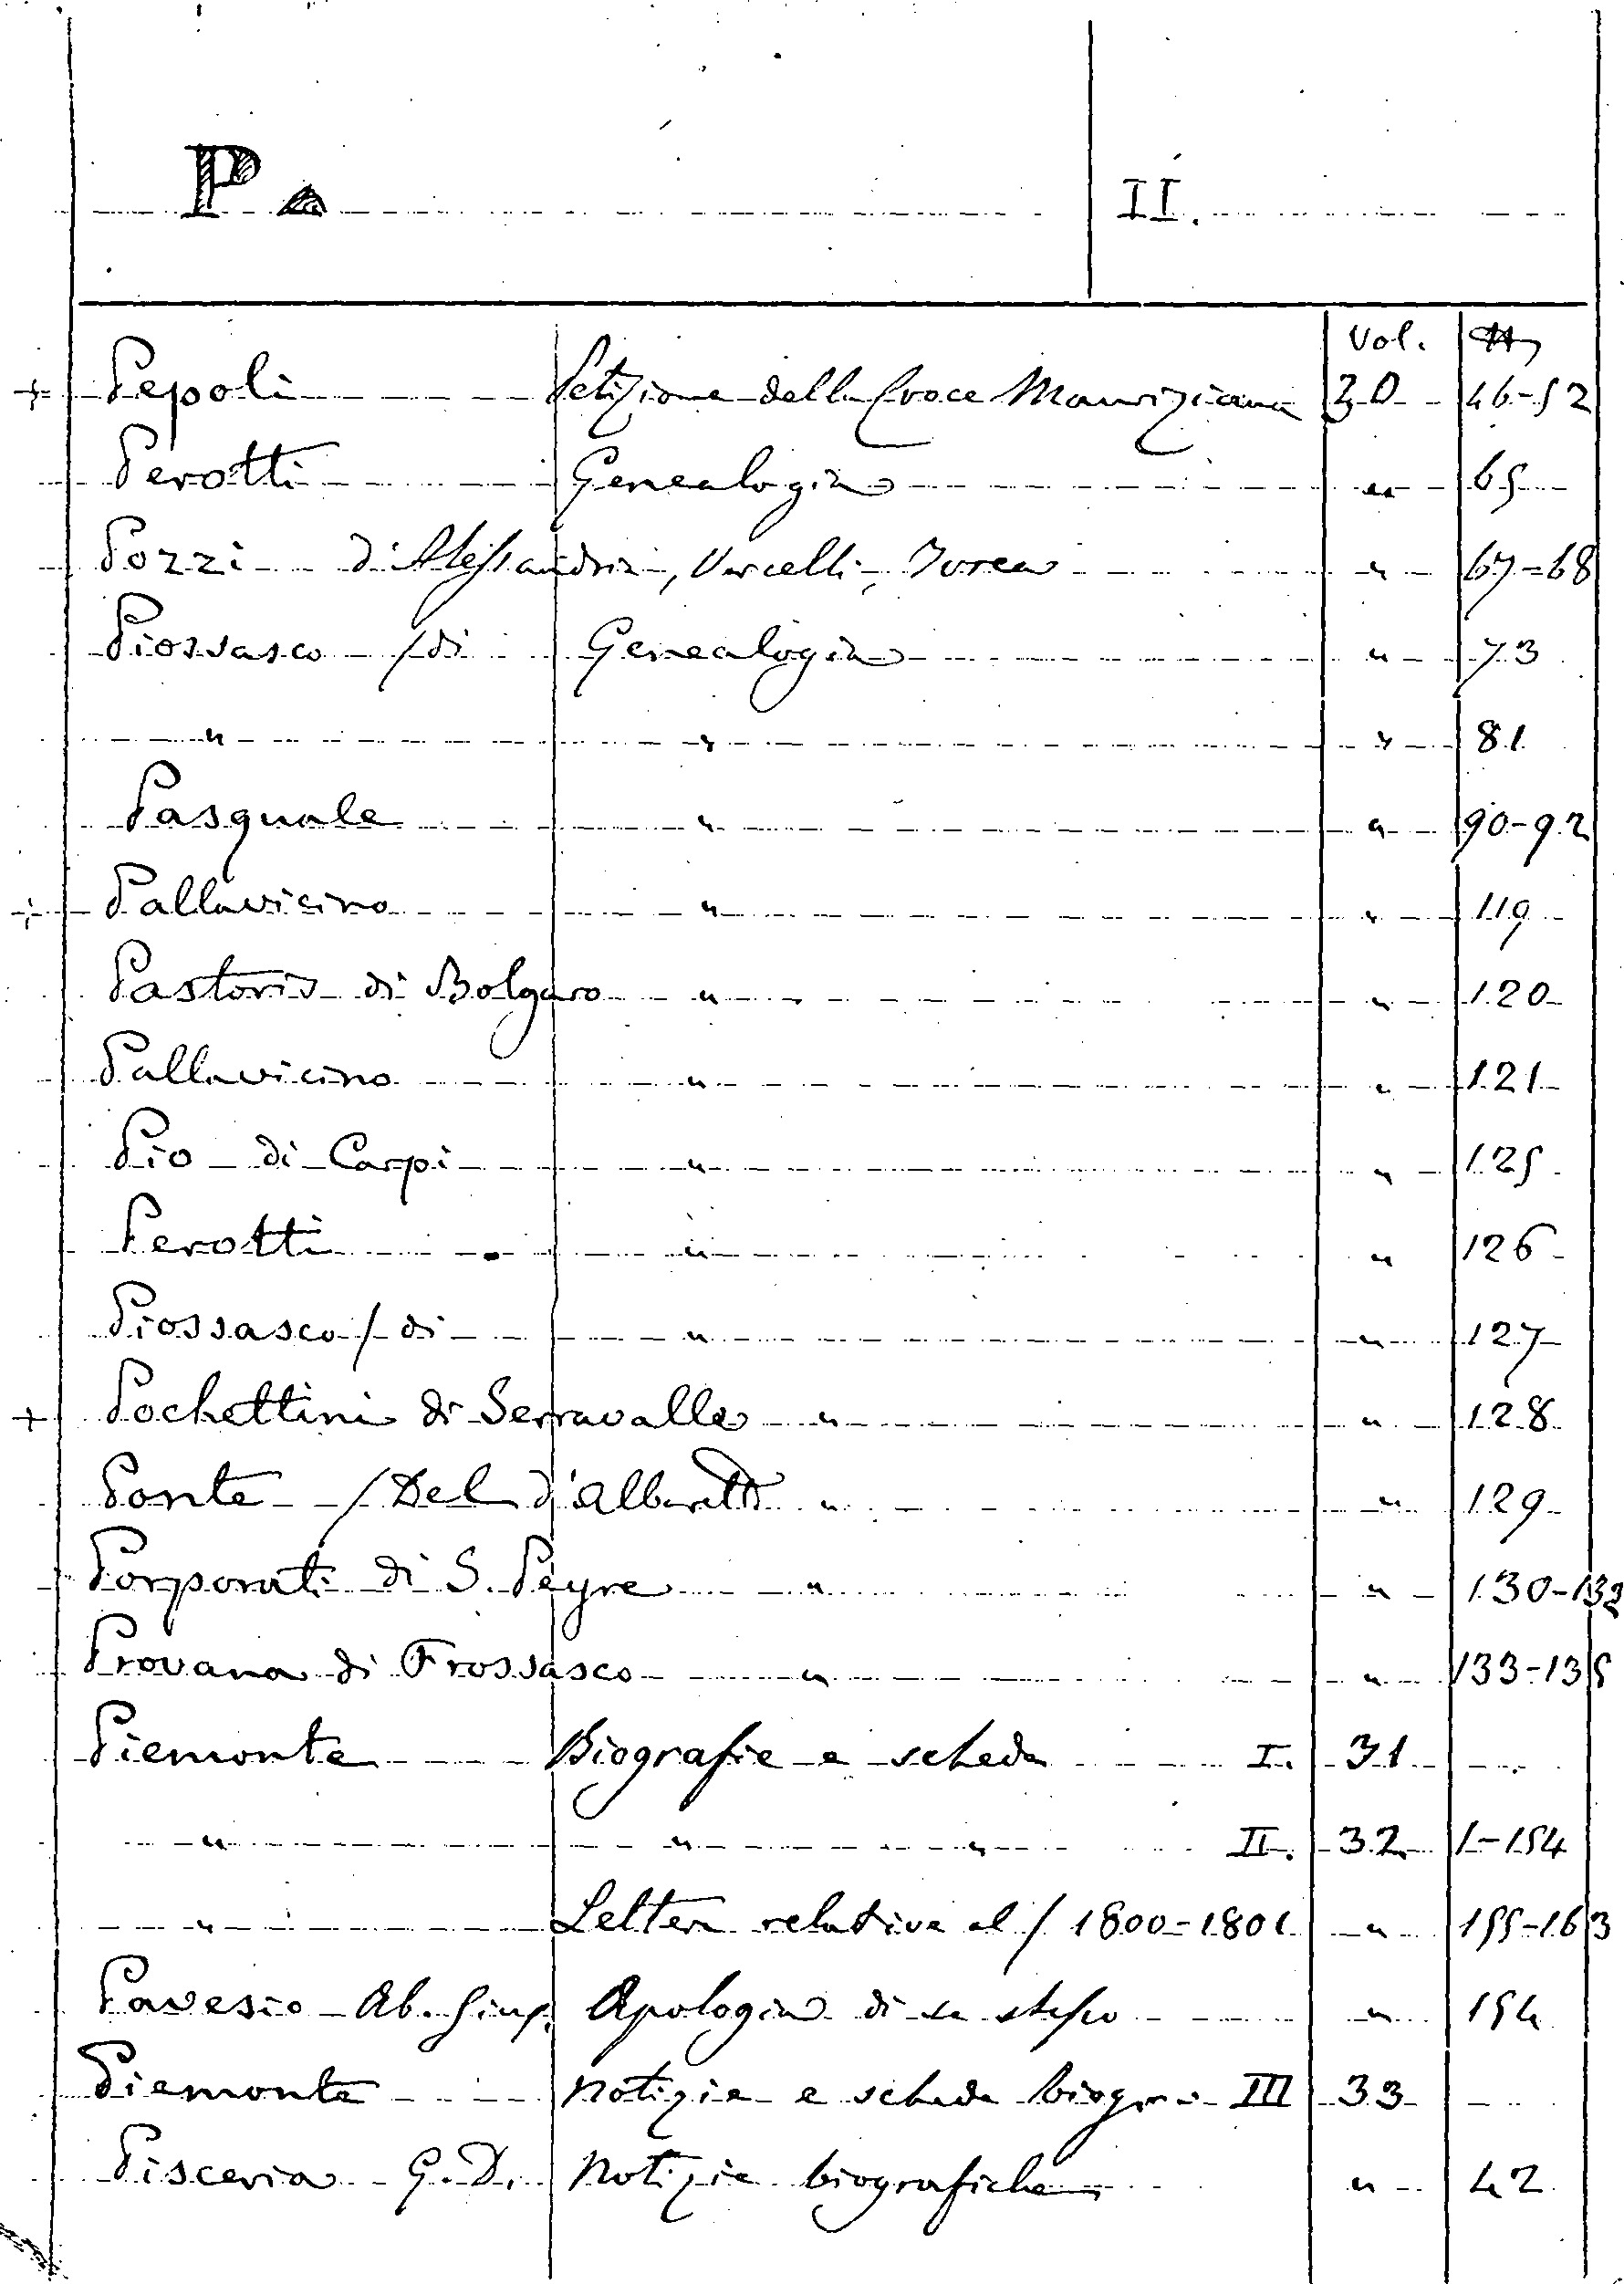 P II.
Vol.
+ Pepoli Petizione della Croce Mauriziana 30 46-52
Perotti Genealogia " 65
Pozzi di Alessandria, Vercelli, Ivrea " 67-68
Piossasco /di Genealogia " 73
" " " 81
Pasquale " " 90-92
+ Pallavicino " " 119
Pastoris di Bolgaro " " 120
Pallavicino " " 121
Pio di Carpi " " 125
Perotti " " 126
Piossasco / di " " 127
+ Pochettini di Serravalle " " 128
Ponte /Del d'Albaretto " " 129
Porporati di S. Peyre " " 130-132
Provana di Frossasco " " 133-135
Piemonte Biografie e schede I. 31
" " " II. 32 1-154
" Lettere relative al / 1800-1801 " 155-163
Pavesio Ab. Giup. Apologia di se stesso " 154
Piemonte Notizie e schede biogr. III 33
Pisceria G. D. Notizie biografiche " 42